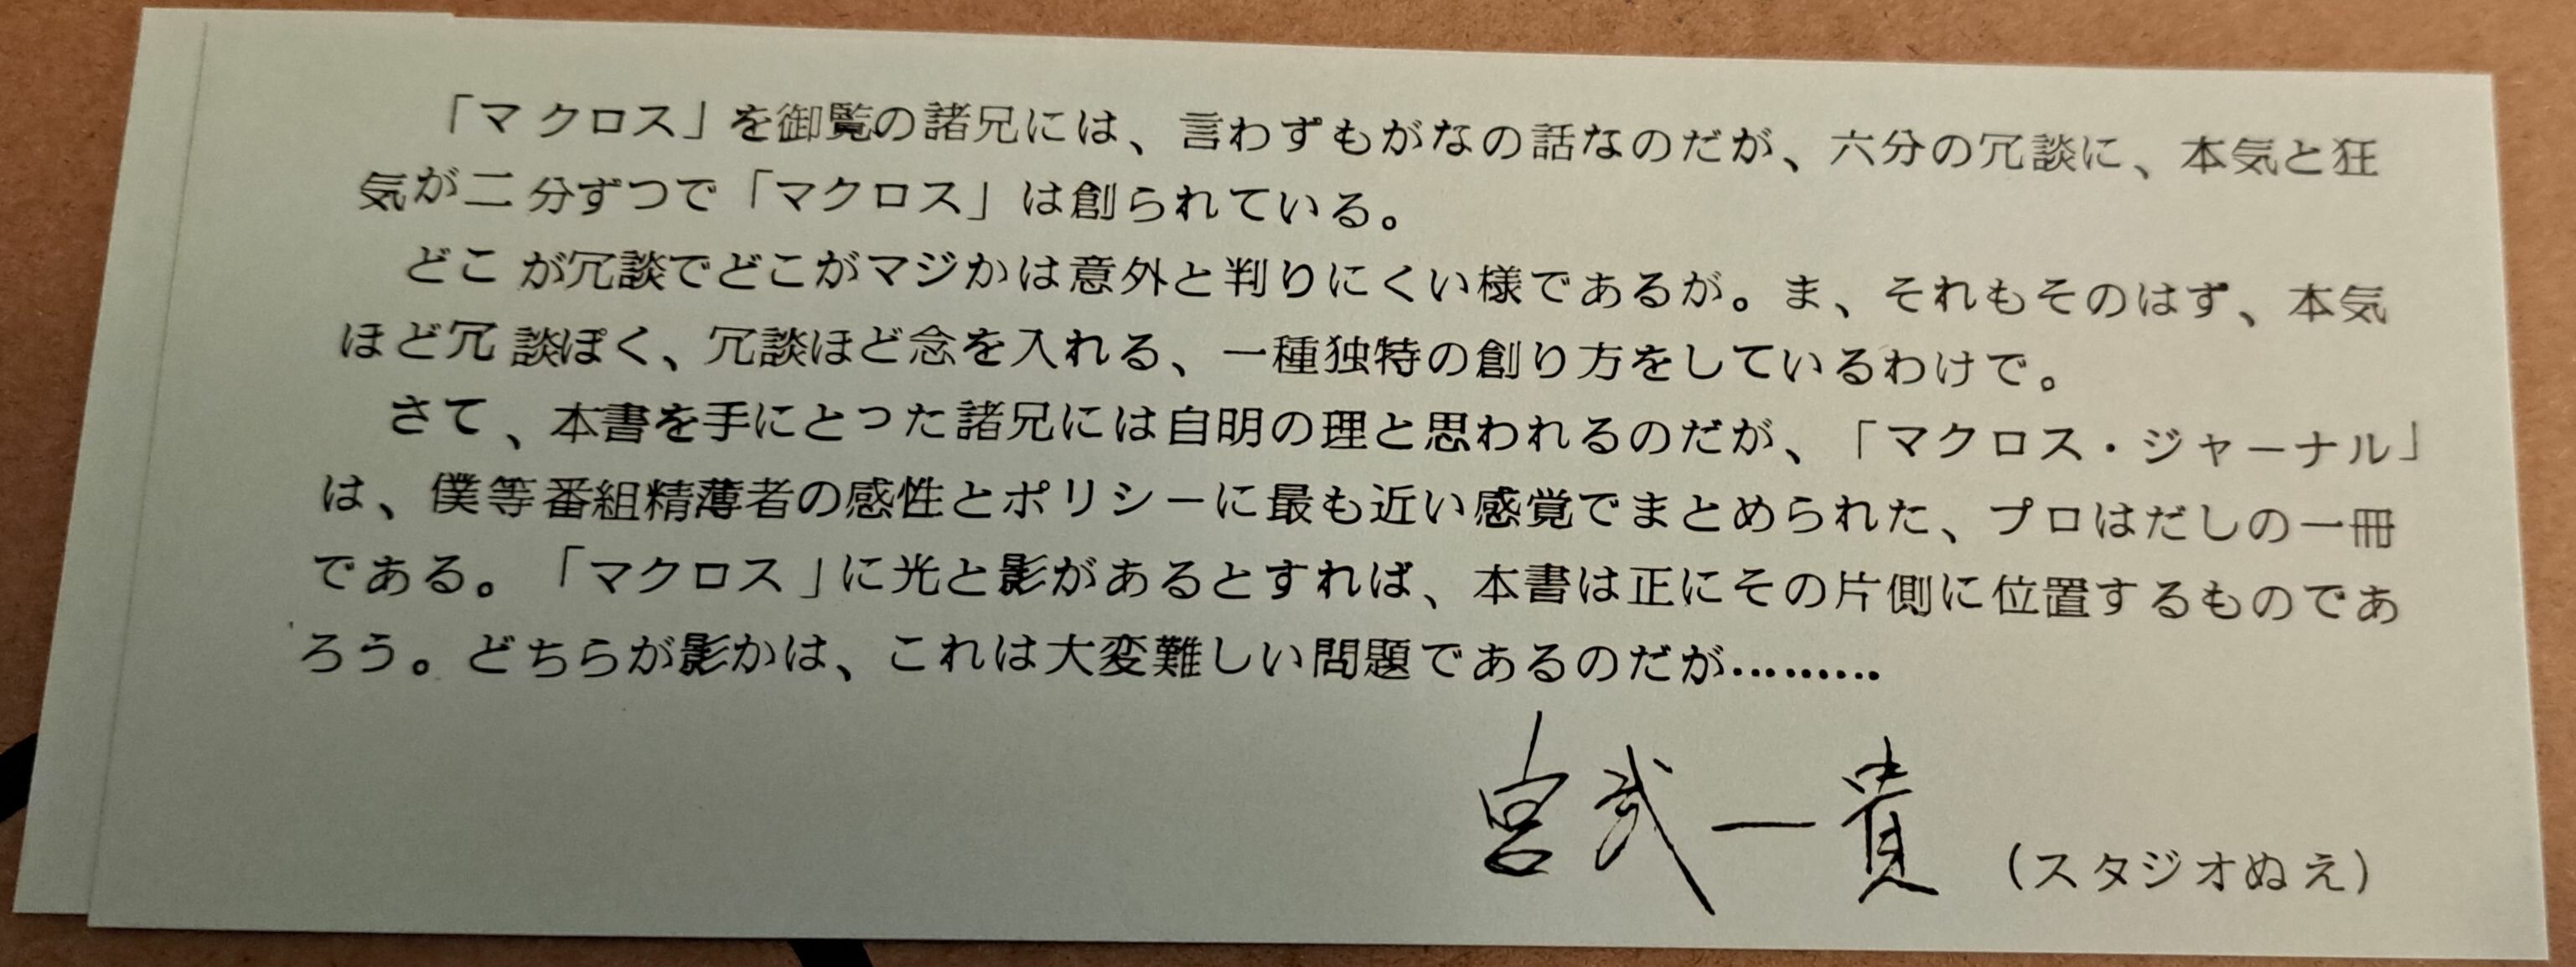 「マクロス」を御覧の諸兄には、言わずもがなの話なのだが、六分の冗談に、本気と狂
気が二分ずつで「マクロス」は創られている。
どこが冗談でどこがマジかは意外と判りにくい様であるが。ま、それもそのはず、本気
ほど冗談ぽく、冗談ほど念を入れる、一種独特の創り方をしているわけで。
さて、本書を手にとった諸兄には自明の理と思われるのだが、「マクロス・ジャーナル」
は、僕等番組精薄者の感性とポリシーに最も近い感覚でまとめられた、プロはだしの一冊
である。「マクロス」に光と影があるとすれば、本書は正にその片側に位置するものであ
ろう。どちらが影かは、これは大変難しい問題であるのだが………
宮武一貴（スタジオぬえ）